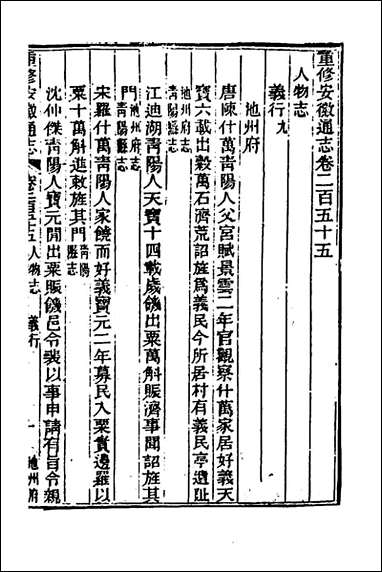 重修安徽通志卷二百五十五
人物志
義行九
池州府
唐陳什萬靑陽人父宮賦景雲二年官觀察什萬家居好義天
寶六載出穀萬石濟荒詔旌爲義民今所居村有義民亭遺址
池州府志
靑陽縣志
江迪湖靑陽人天寶十四載歲饑出粟萬斛賑濟事聞詔旌其
門池州府志
靑陽縣志
宋羅什萬靑陽人家饒而好義寶元二年募民入粟實邊羅以
粟十萬斛進敕旌其門靑陽
縣志
沈仲傑靑陽人寶元閒出粟賑饑邑令裴以事申請有旨令親
重修安徽通志 卷二百五十五 人物志 義行 一 池州府